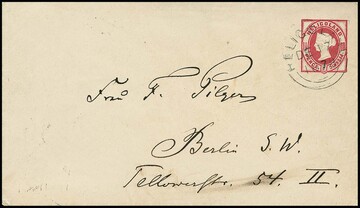 HELIGOLAND
Frau F. Pilger
Berlin S. W.
Tellowerstr. 54. II.